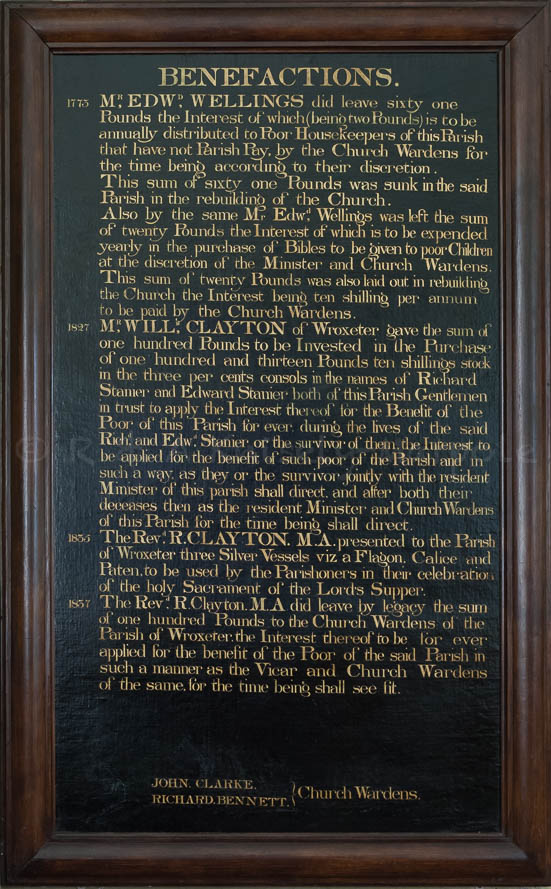 BENEFACTIONS.
1773 Mr. EDWD. WELLINGS did leave sixty one
Pounds the Interest of which (being two Pounds) is to be
annually distributed to Poor Housekeepers of this Parish
that have not Parish Pay, by the Church Wardens for
the time being according to their discretion.
This sum of sixty one Pounds was sunk in the said
Parish in the rebuilding of the Church.
Also by the same Mr. Edwd. Wellings was left the sum
of twenty Pounds the Interest of which is to be expended
yearly in the purchase of Bibles to be given to poor Children
at the discretion of the Minister and Church Wardens.
This sum of twenty Pounds was also laid out in rebuilding
the Church the Interest being ten shilling per annum
to be paid by the Church Wardens.
1827 Mr. WILLM. CLAYTON of Wroxeter gave the sum of
one hundred Pounds to be Invested in the Purchase
of one hundred and thirteen Pounds ten shillings stock
in the three per cents consols in the names of Richard
Stanier and Edward Stanier both of this Parish Gentlemen
in trust to apply the Interest thereof for the Benefit of the
Poor of this Parish for ever, during the lives of the said
Richd. and Edwd. Stanier or the survivor of them, the Interest to
be applied for the benefit of such poor of the Parish and in
such a way, as they or the survivor jointly with the resident
Minister of this parish shall direct, and after both their
deceases then as the resident Minister and Church Wardens
of this Parish for the time being shall direct.
1835 The Revd. R. CLAYTON. M.A. presented to the Parish
of Wroxeter three Silver Vessels viz a Flagon, Calice and
Paten, to be used by the Parishoners in their celebration
of the holy Sacrament of the Lords Supper.
1837 The Revd. R. Clayton. M.A did leave by legacy the sum
of one hundred Pounds to the Church Wardens of the
Parish of Wroxeter, the Interest thereof to be for ever
applied for the benefit of the Poor of the said Parish in
such a manner as the Vicar and Church Wardens
of the same, for the time being shall see fit.
JOHN. CLARKE.
RICHARD. BENNETT. } Church Wardens.